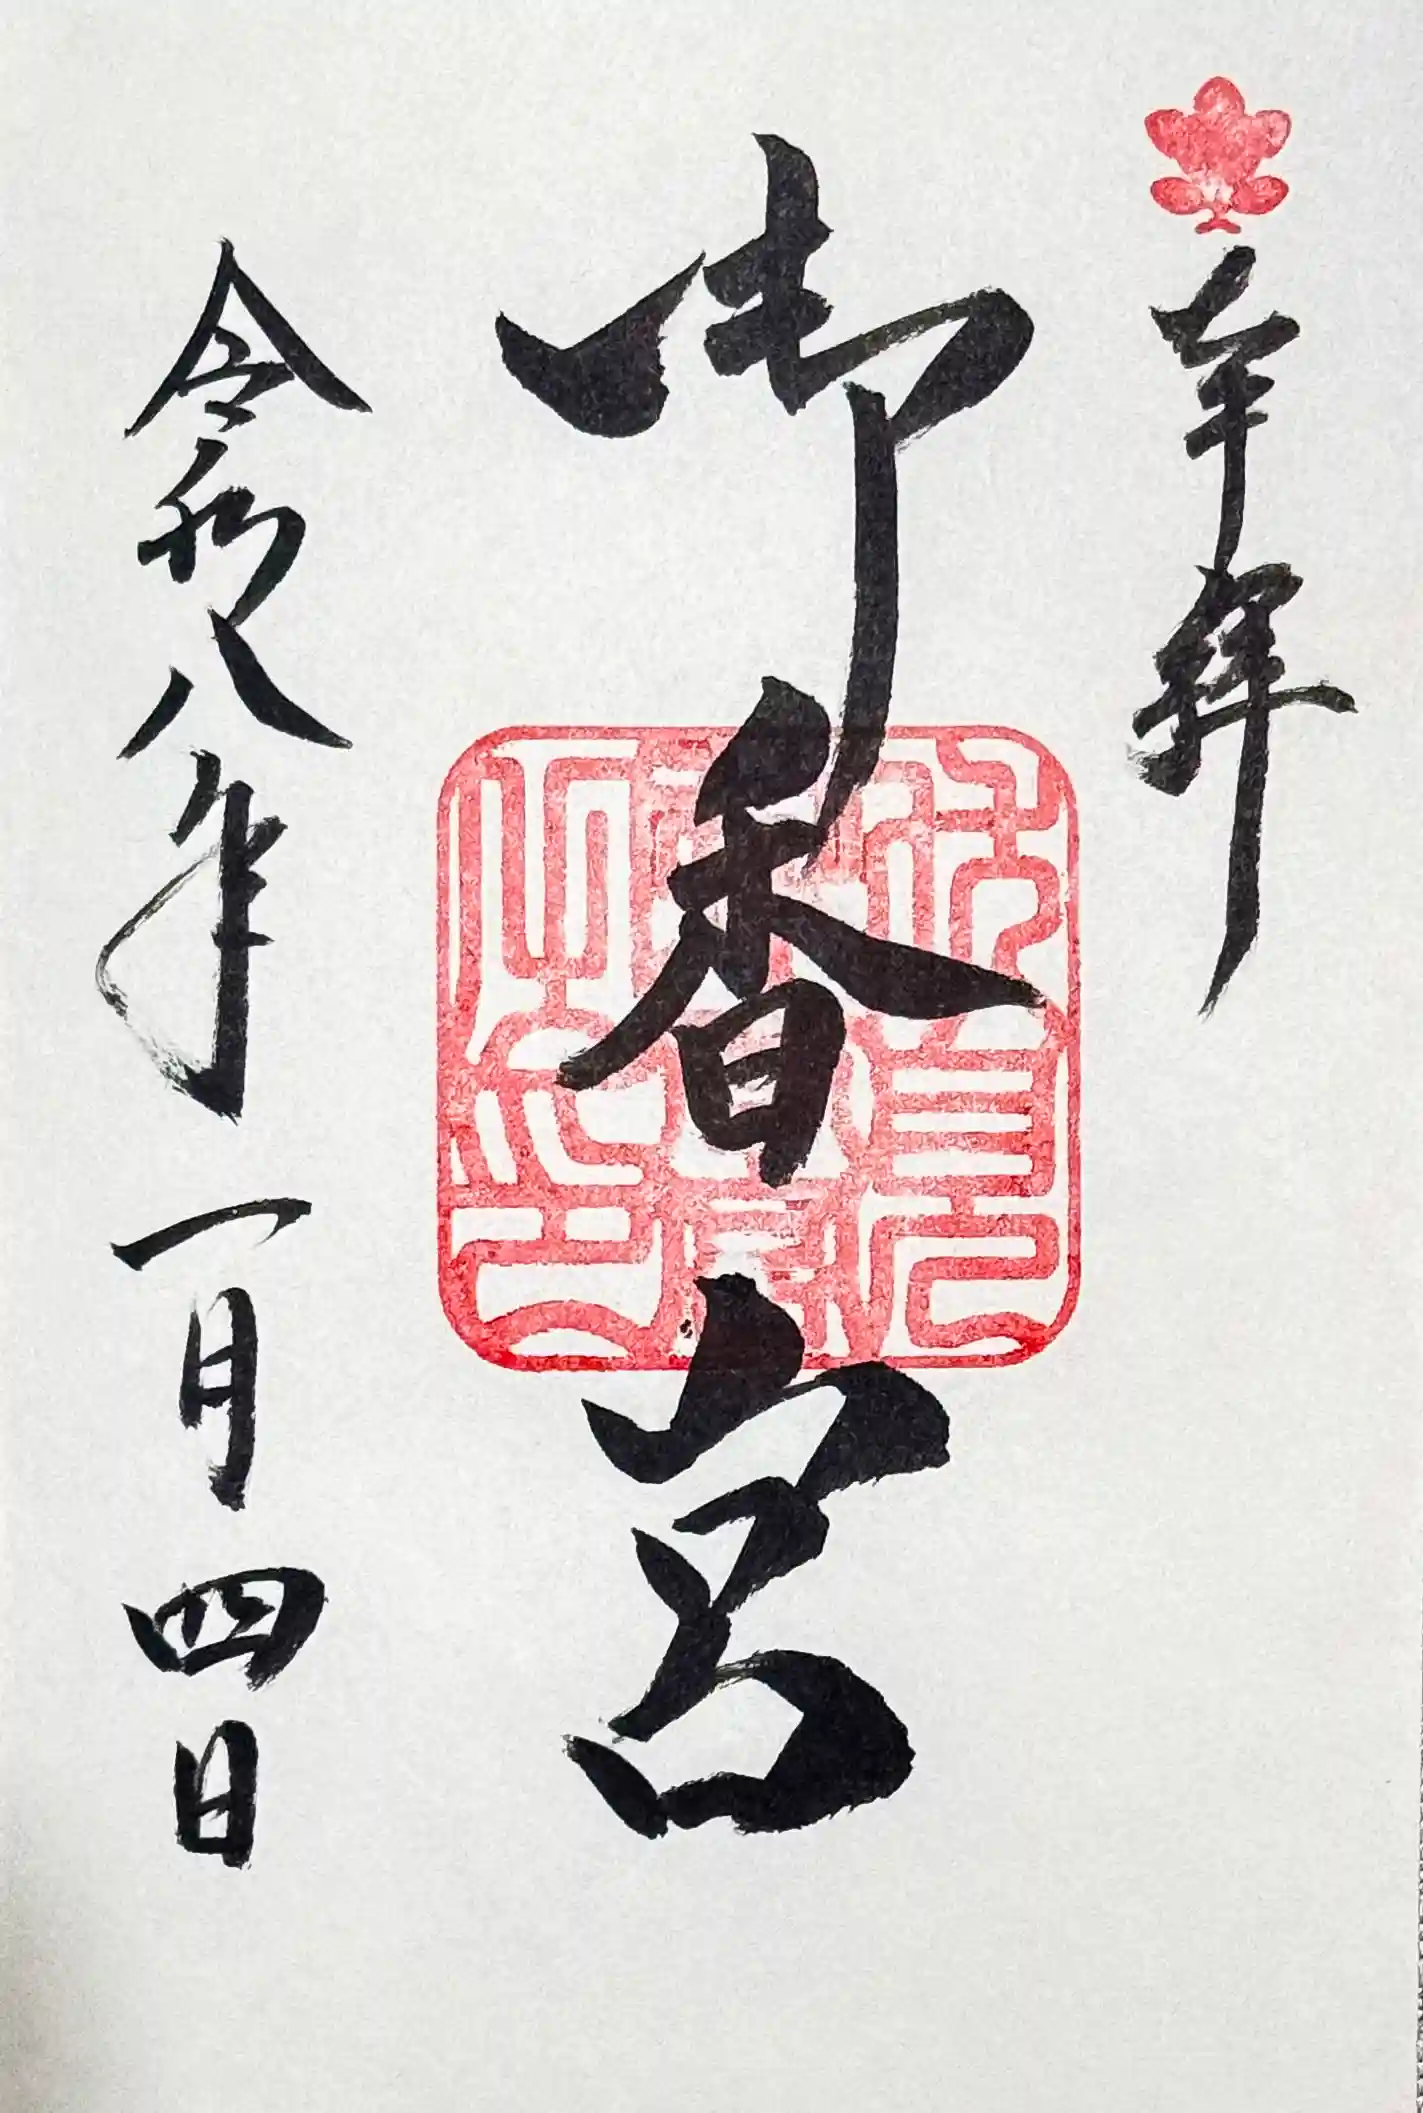 奉拝
御香宮
令和八年一月四日